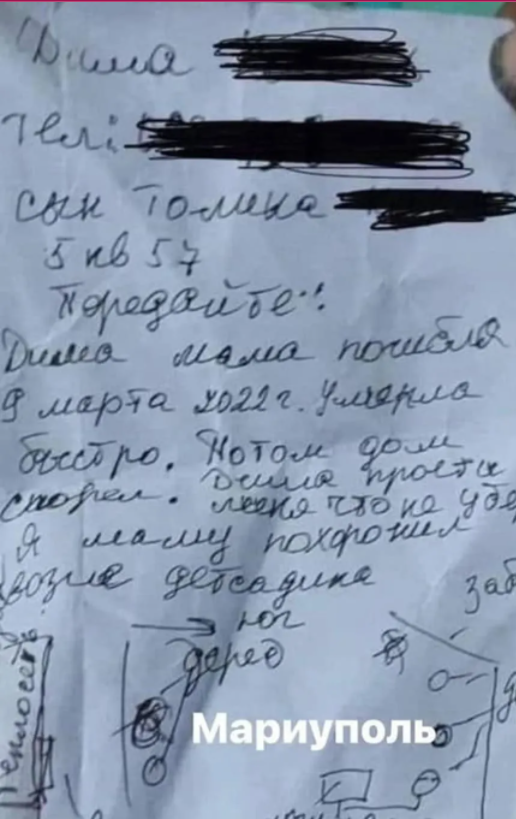 Дима
Тел:
сын Толика
5 кв 57
Передайте!:
Дима мама погибла
9 марта 2022 г. Умерла
быстро. Потом дом
сгорел. Дима прости
меня что не убе
Я маму похоронил
возле детсадика
юг
дерев
заб
Теплосеть
Мариуполь